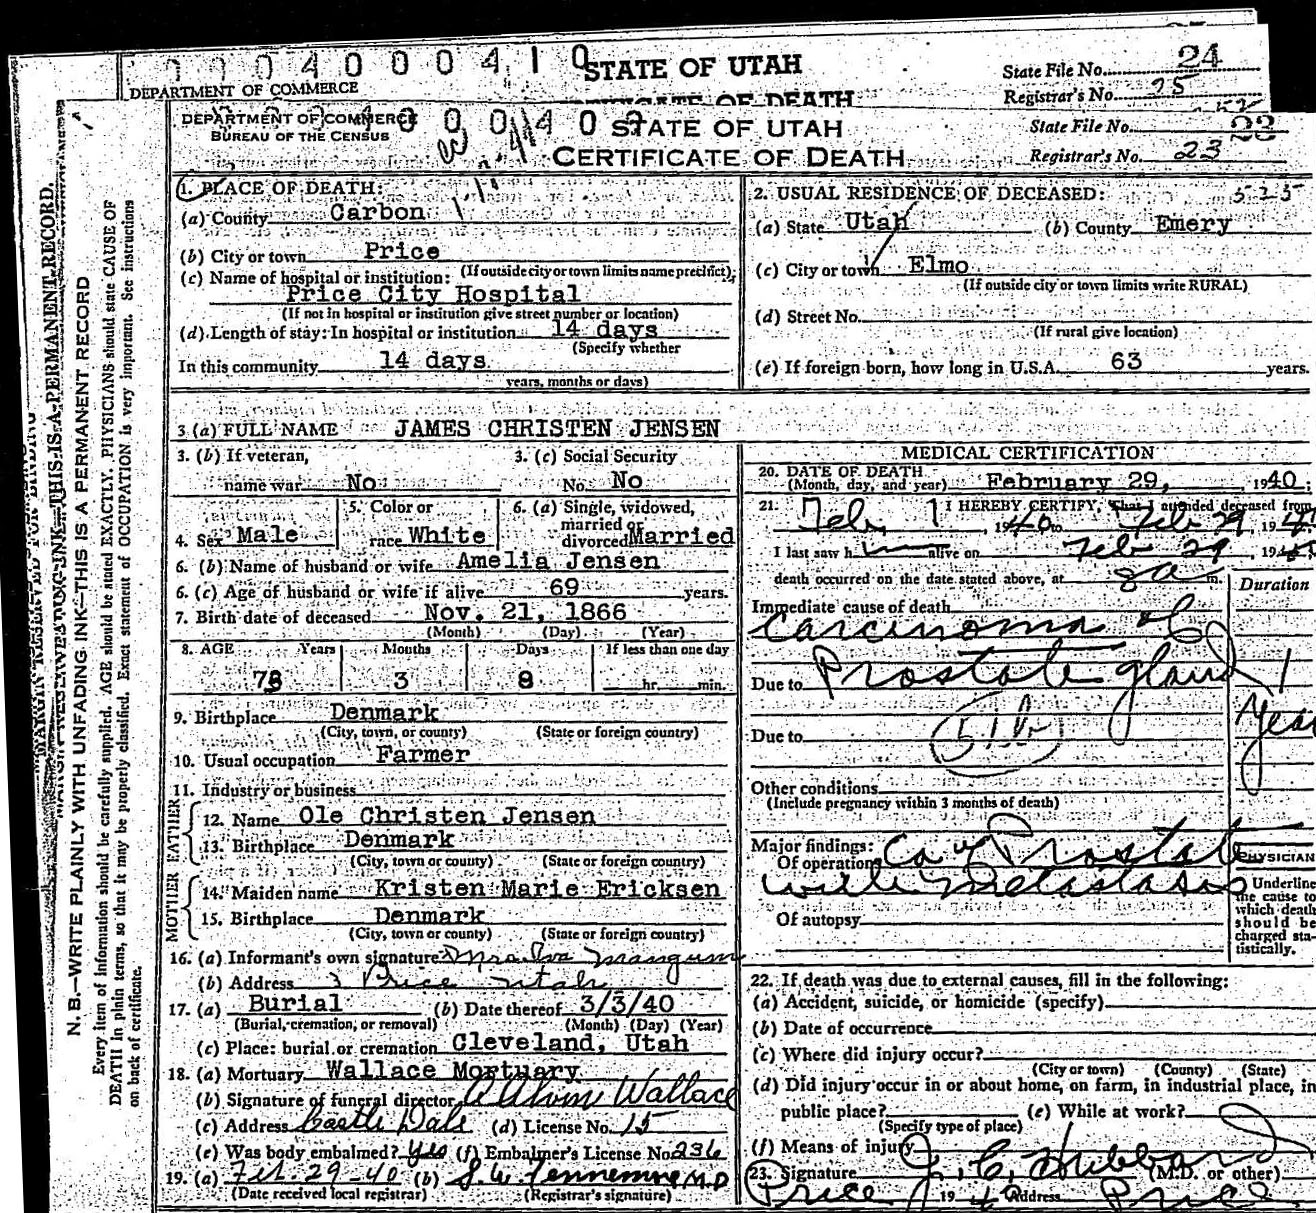 0004000410
STATE OF UTAH
State File No. 24
DEPARTMENT OF COMMERCE
Registrar's No. 25
DEPARTMENT OF COMMERCE
BUREAU OF THE CENSUS
STATE OF UTAH
CERTIFICATE OF DEATH
State File No. 23
Registrar's No. 23
1. PLACE OF DEATH:
(a) County Carbon
(b) City or town Price
(If outside city or town limits name precinct);
(c) Name of hospital or institution:
Price City Hospital
(If not in hospital or institution give street number or location)
(d) Length of stay: In hospital or institution 14 days
(Specify whether
In this community 14 days
years, months or days)
2. USUAL RESIDENCE OF DECEASED: 525
(a) State Utah (b) County Emery
(c) City or town Elmo
(If outside city or town limits write RURAL)
(d) Street No.
(If rural give location)
(e) If foreign born, how long in U.S.A. 63 years.
3 (a) FULL NAME JAMES CHRISTEN JENSEN
3. (b) If veteran,
name war No
3. (c) Social Security
No. No
4. Sex Male
5. Color or
race White
6. (a) Single, widowed,
married or
divorced Married
6. (b) Name of husband or wife Amelia Jensen
6. (c) Age of husband or wife if alive 69 years.
7. Birth date of deceased Nov. 21, 1866
(Month) (Day) (Year)
8. AGE Years Months Days If less than one day
73 3 8 hr. min.
9. Birthplace Denmark
(City, town, or county) (State or foreign country)
10. Usual occupation Farmer
11. Industry or business
FATHER
12. Name Ole Christen Jensen
13. Birthplace Denmark
(City, town or county) (State or foreign country)
MOTHER
14. Maiden name Kristen Marie Ericksen
15. Birthplace Denmark
(City, town or county) (State or foreign country)
16. (a) Informant's own signature Mrs Iva Mangum
(b) Address Price Utah
17. (a) Burial (b) Date thereof 3/3/40
(Burial, cremation, or removal) (Month) (Day) (Year)
(c) Place: burial or cremation Cleveland, Utah
18. (a) Mortuary Wallace Mortuary
(b) Signature of funeral director Wallace
(c) Address Castle Dale (d) License No. 15
(e) Was body embalmed? Yes (f) Embalmer's License No. 236
19. (a) Feb. 29-40 (b) M.D
(Date received local registrar) (Registrar's signature)
MEDICAL CERTIFICATION
20. DATE OF DEATH
(Month, day, and year) February 29, 1940;
21. I HEREBY CERTIFY, That I attended deceased from
Feb 1 1940 to Feb 29, 194
I last saw h alive on Feb 29, 1940
death occurred on the date stated above, at 8 a m.
Duration
Immediate cause of death
Carcinoma of
Due to Prostate gland 1
Year
Due to
51b
Other conditions
(Include pregnancy within 3 months of death)
Major findings:
Of operations Ca of Prostate
with Metastasis
Of autopsy
PHYSICIAN
Underline
the cause to
which death
should be
charged sta-
tistically.
22. If death was due to external causes, fill in the following:
(a) Accident, suicide, or homicide (specify)
(b) Date of occurrence
(c) Where did injury occur?
(City or town) (County) (State)
(d) Did injury occur in or about home, on farm, in industrial place, in
public place? (e) While at work?
(Specify type of place)
(f) Means of injury
23. Signature J. C. Hubbard (M.D. or other)
Price 1940 Address Price
N. B.—WRITE PLAINLY WITH UNFADING INK—THIS IS A PERMANENT RECORD
Every item of information should be carefully supplied. AGE should be stated EXACTLY. PHYSICIANS should state CAUSE OF
DEATH in plain terms, so that it may be properly classified. Exact statement of OCCUPATION is very important. See instructions
on back of certificate.